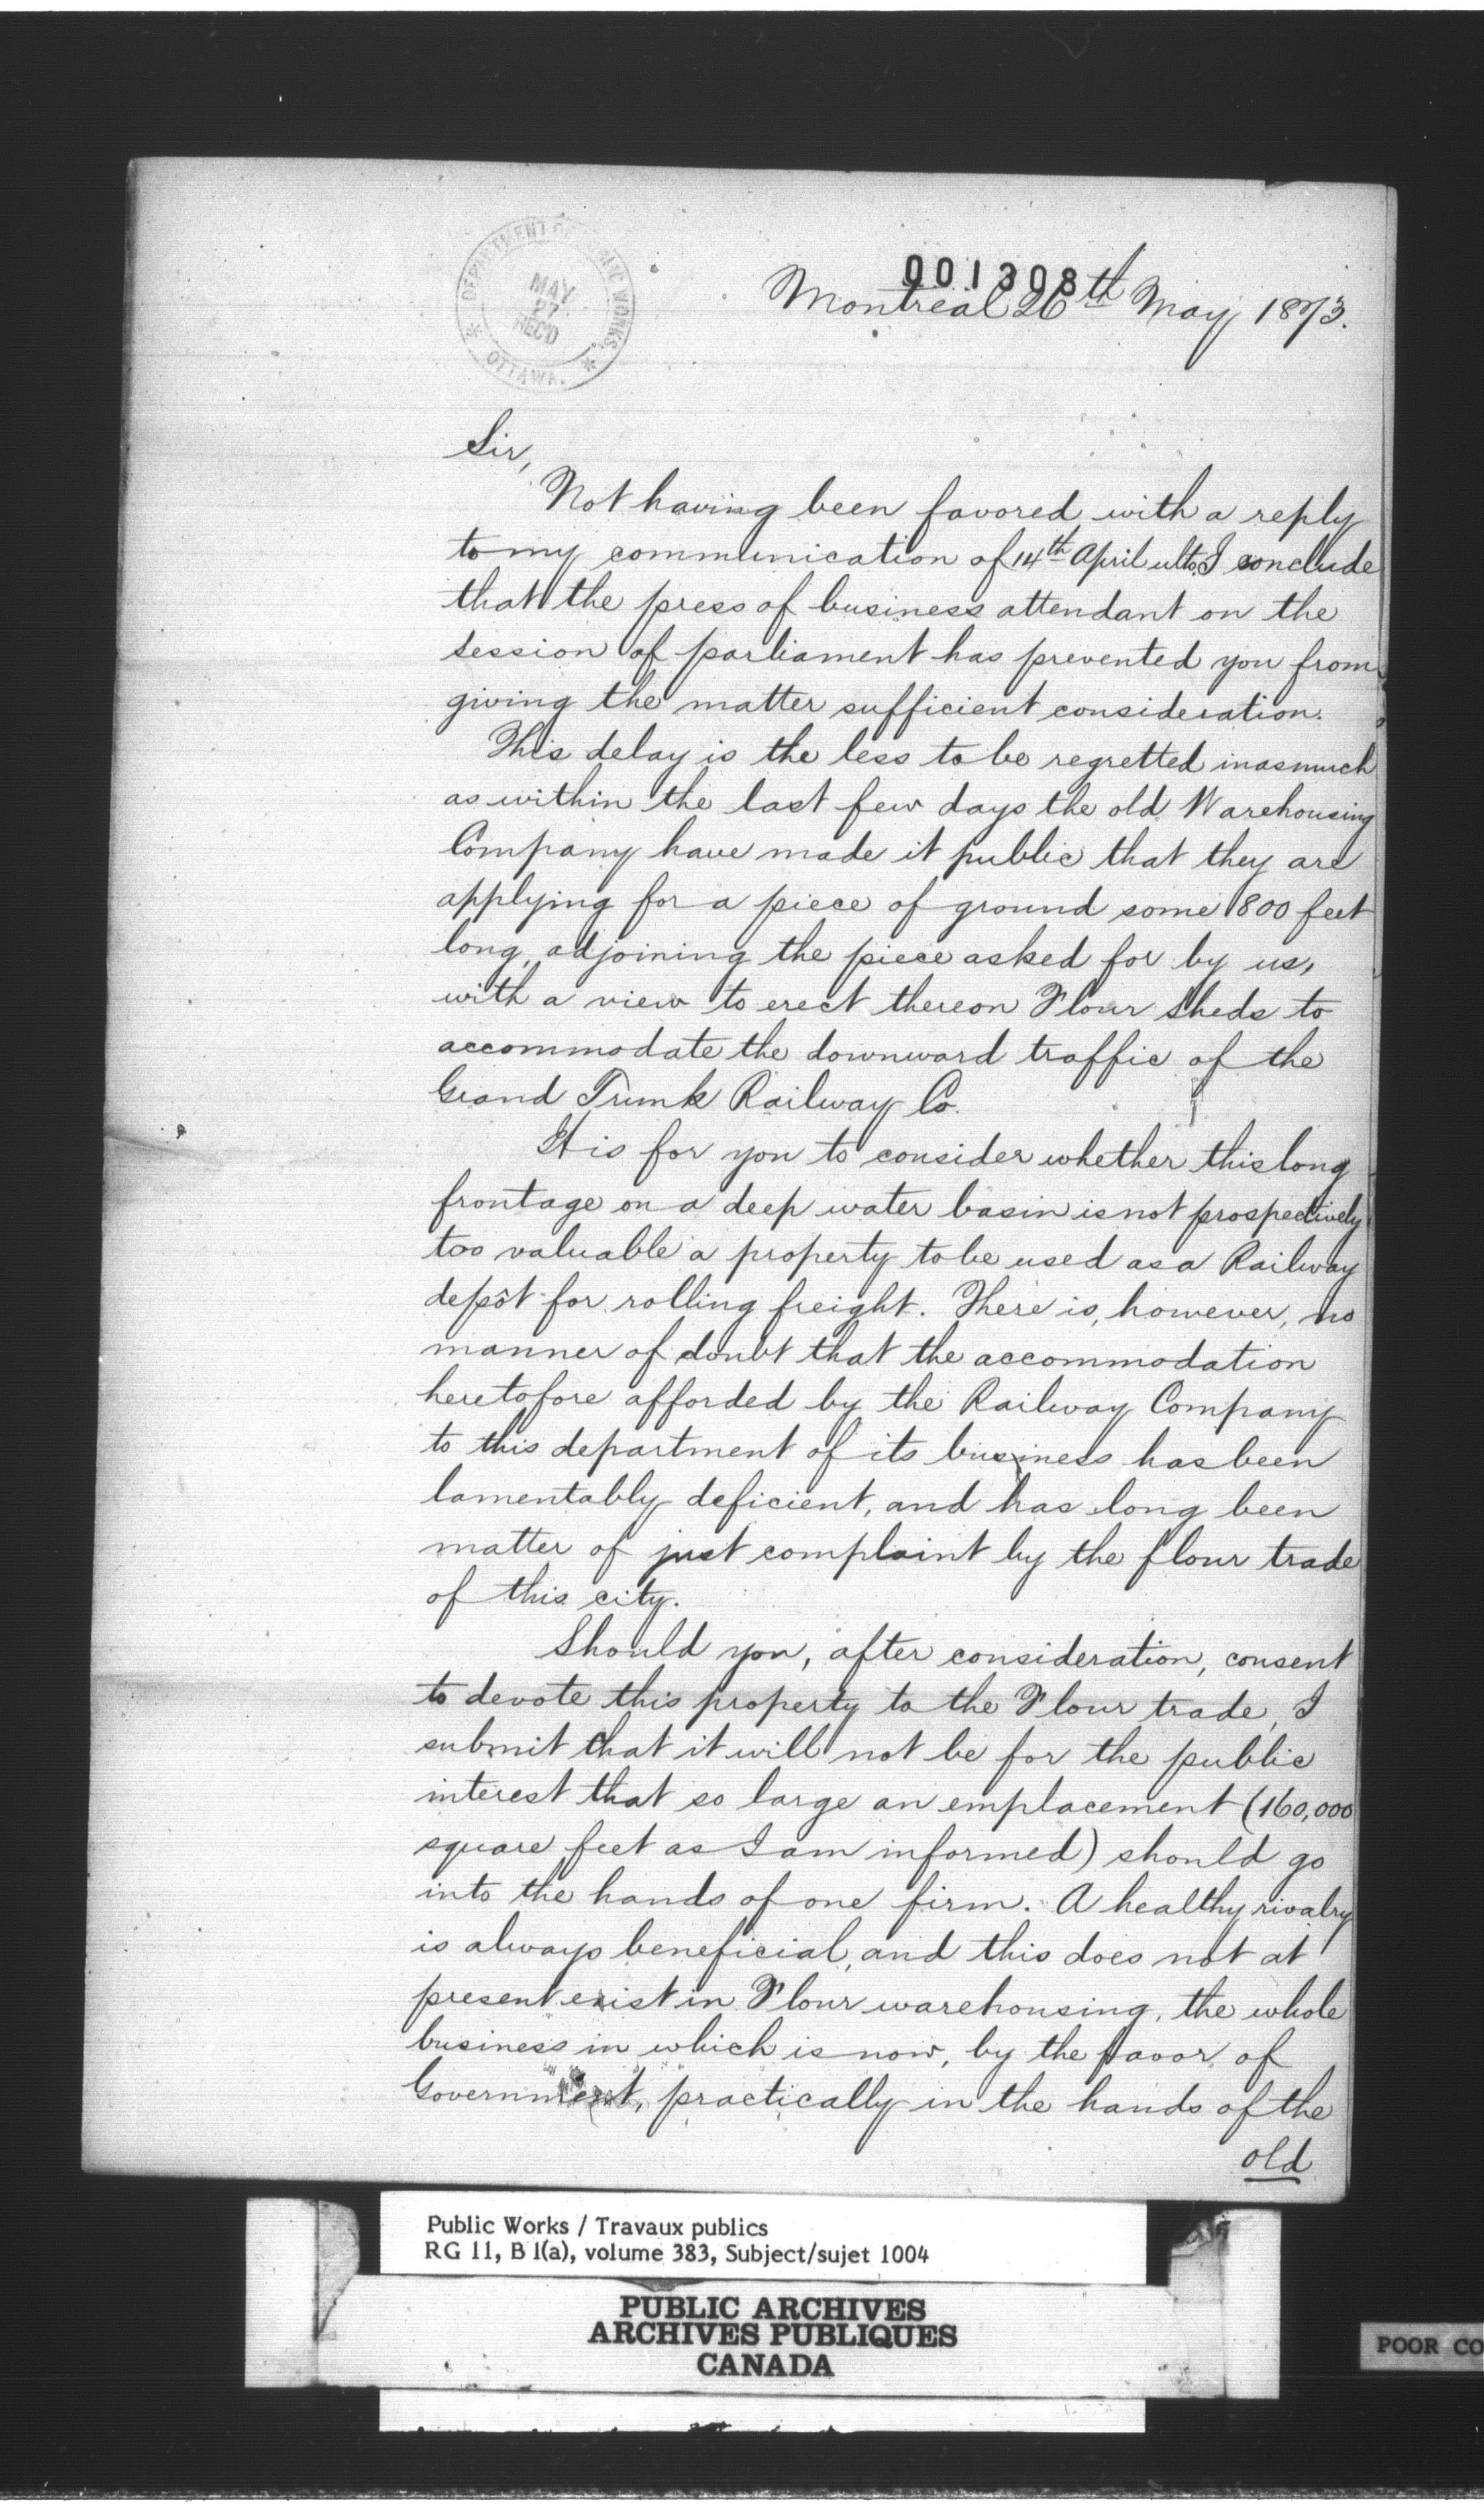 DEPARTMENT OF PUBLIC WORKS.
MAY
27
REC'D
* OTTAWA. *
001398
Montreal 26th May 1873.
Sir,
Not having been favored with a reply
to my communication of 14th April ulto. I conclude
that the press of business attendant on the
session of parliament has prevented you from
giving the matter sufficient consideration.
This delay is the less to be regretted inasmuch
as within the last few days the old Warehousing
Company have made it public that they are
applying for a piece of ground some 800 feet
long, adjoining the piece asked for by us,
with a view to erect thereon Flour Sheds to
accommodate the downward traffic of the
Grand Trunk Railway Co.
It is for you to consider whether this long
frontage on a deep water basin is not prospectively
too valuable a property to be used as a Railway
depôt for rolling freight. There is, however, no
manner of doubt that the accommodation
heretofore afforded by the Railway Company
to this department of its business has been
lamentably deficient, and has long been
matter of just complaint by the flour trade
of this city.
Should you, after consideration, consent
to devote this property to the Flour trade, I
submit that it will not be for the public
interest that so large an emplacement (160,000
square feet as I am informed) should go
into the hands of one firm. A healthy rivalry
is always beneficial, and this does not at
present exist in Flour warehousing, the whole
business in which is now, by the favor of
Government, practically in the hands of the
old
Public Works / Travaux publics
RG 11, B 1(a), volume 383, Subject/sujet 1004
PUBLIC ARCHIVES
ARCHIVES PUBLIQUES
CANADA
POOR CO